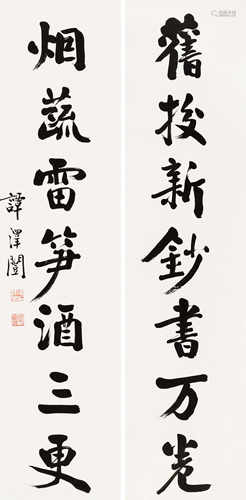 舊挍新鈔書万卷
烟蔬雷笋酒三更
譚澤闓